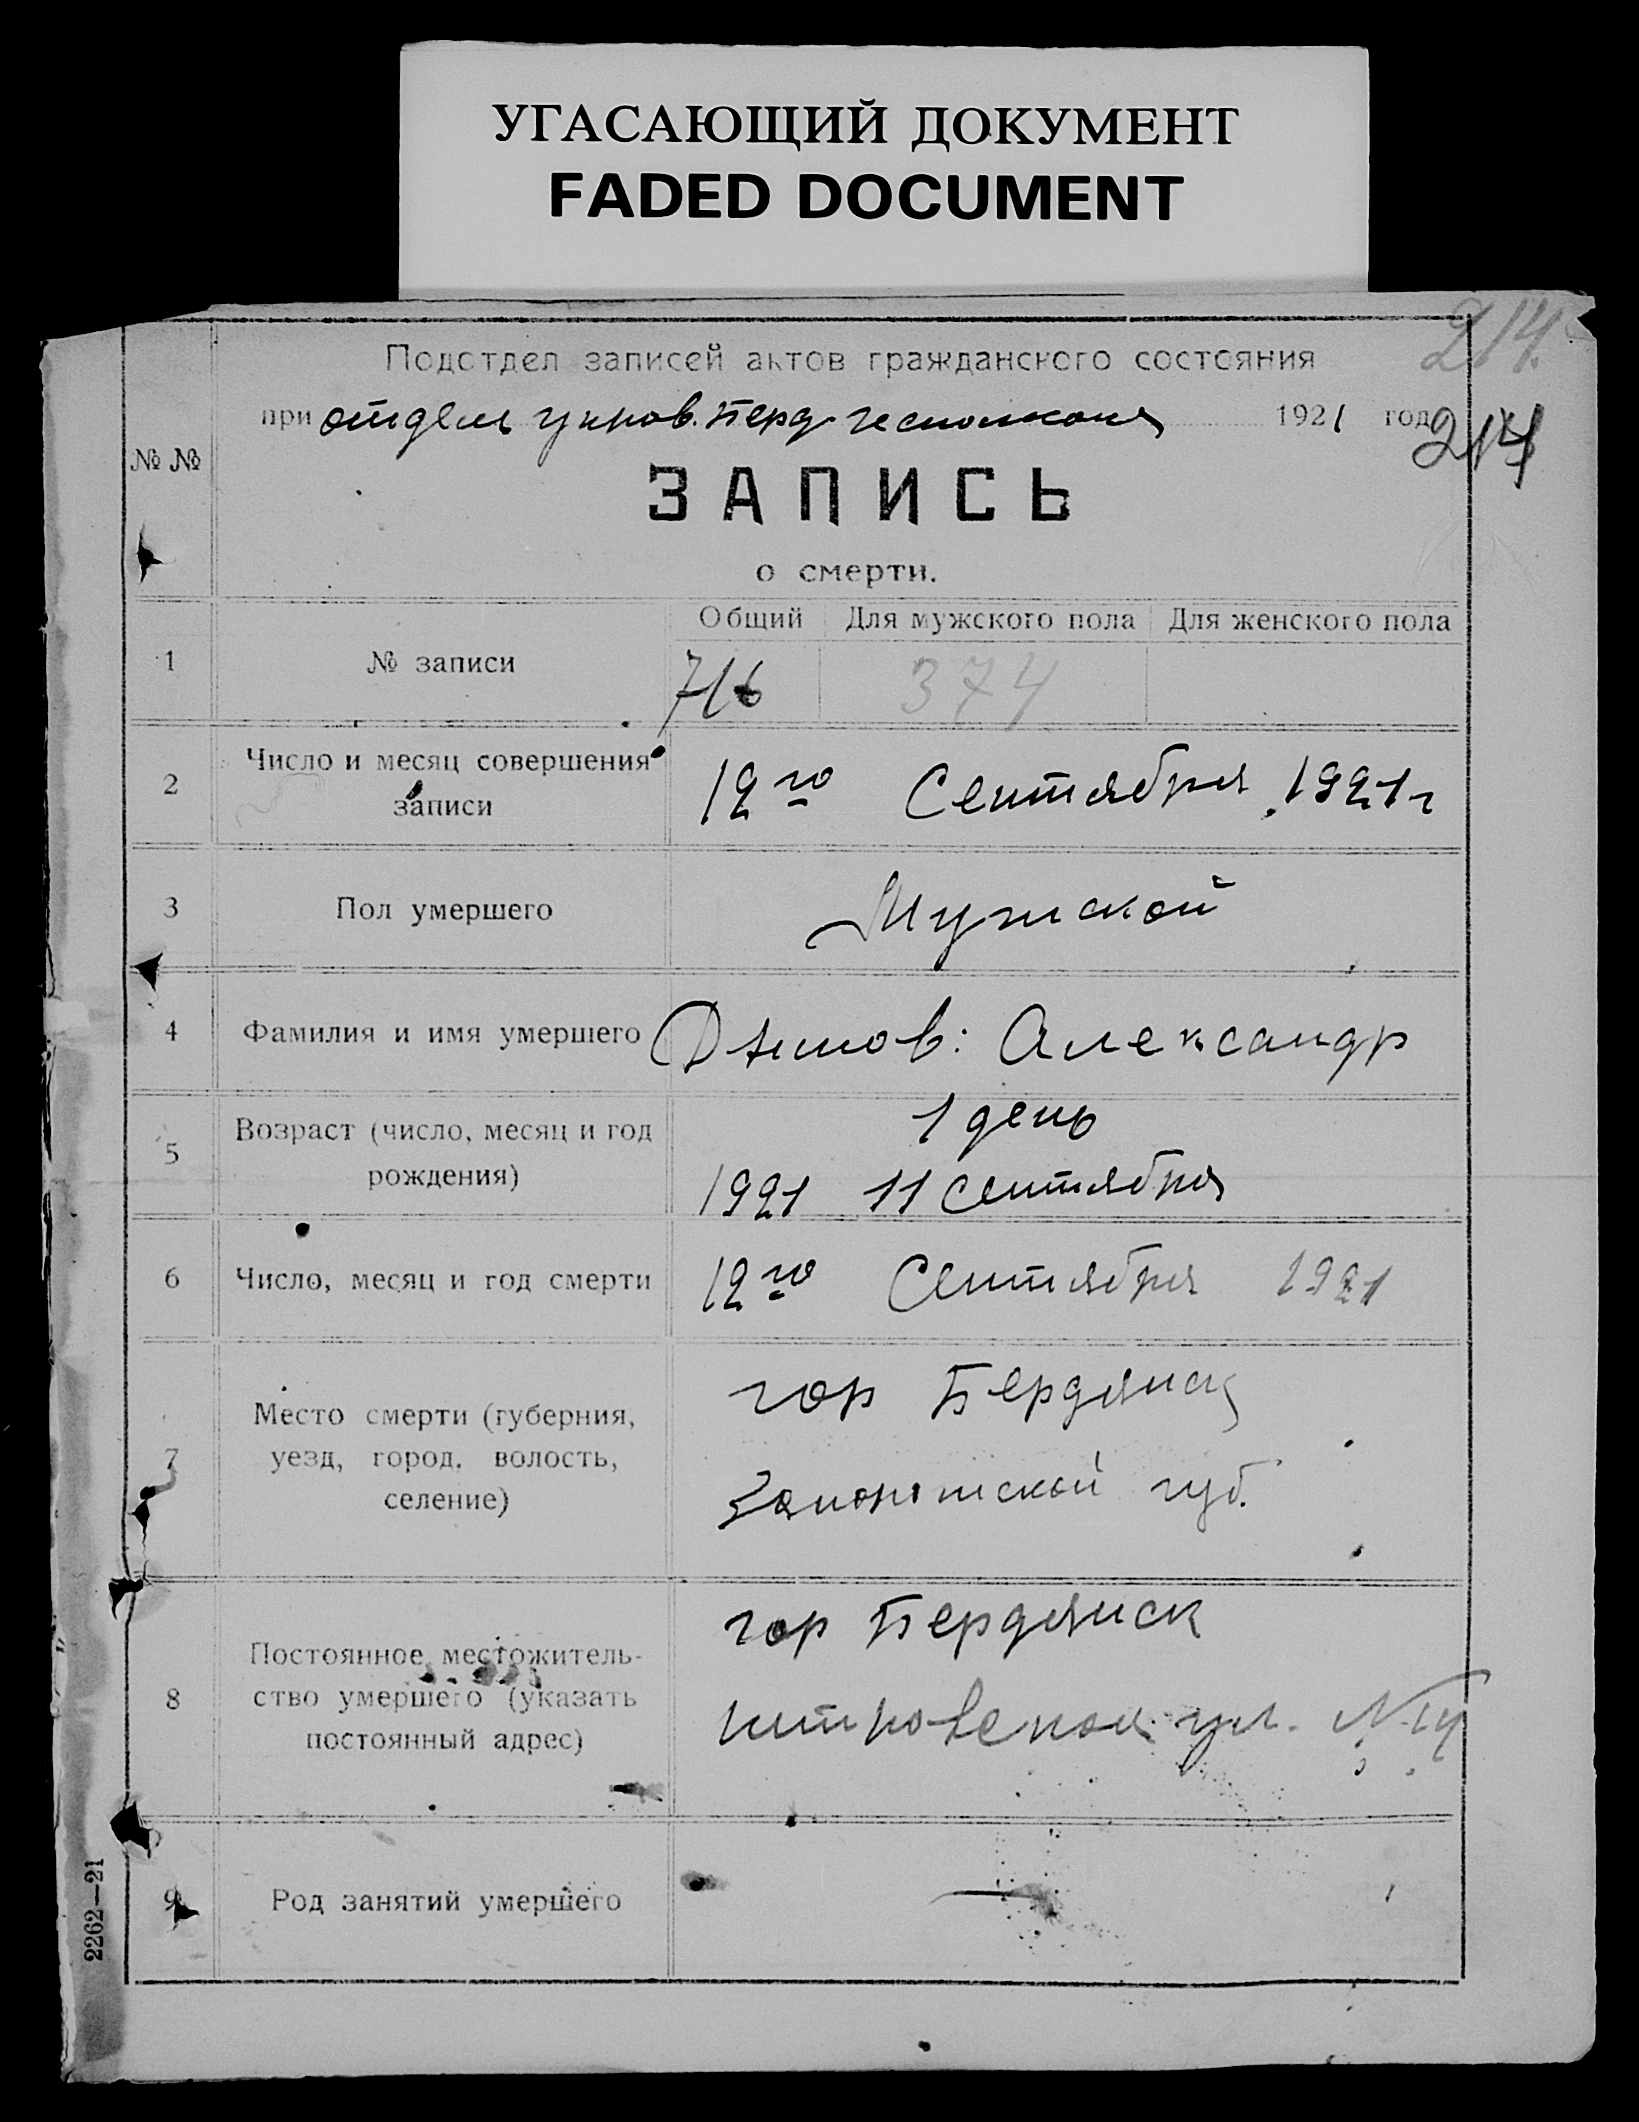 УГАСАЮЩИЙ ДОКУМЕНТ
FADED DOCUMENT
214
Подотдел записей актов гражданского состояния
при отделе управ. Берд исполкома 1921 год
214
№ №
ЗАПИСЬ
о смерти.
Общий Для мужского пола Для женского пола
1 № записи 716 374
2 Число и месяц совершения
записи
12го Сентября 1921 г
3 Пол умершего Мужской
4 Фамилия и имя умершего Александр
5 Возраст (число, месяц и год
рождения)
1 день
1921 11 Сентября
6 Число, месяц и год смерти 12го Сентября 1921
7 Место смерти (губерния,
уезд, город, волость,
селение)
гор Бердянск
Запорожской губ.
8 Постоянное местожитель-
ство умершего (указать
постоянный адрес)
гор Бердянск
ул. №
9 Род занятий умершего —
2262—21